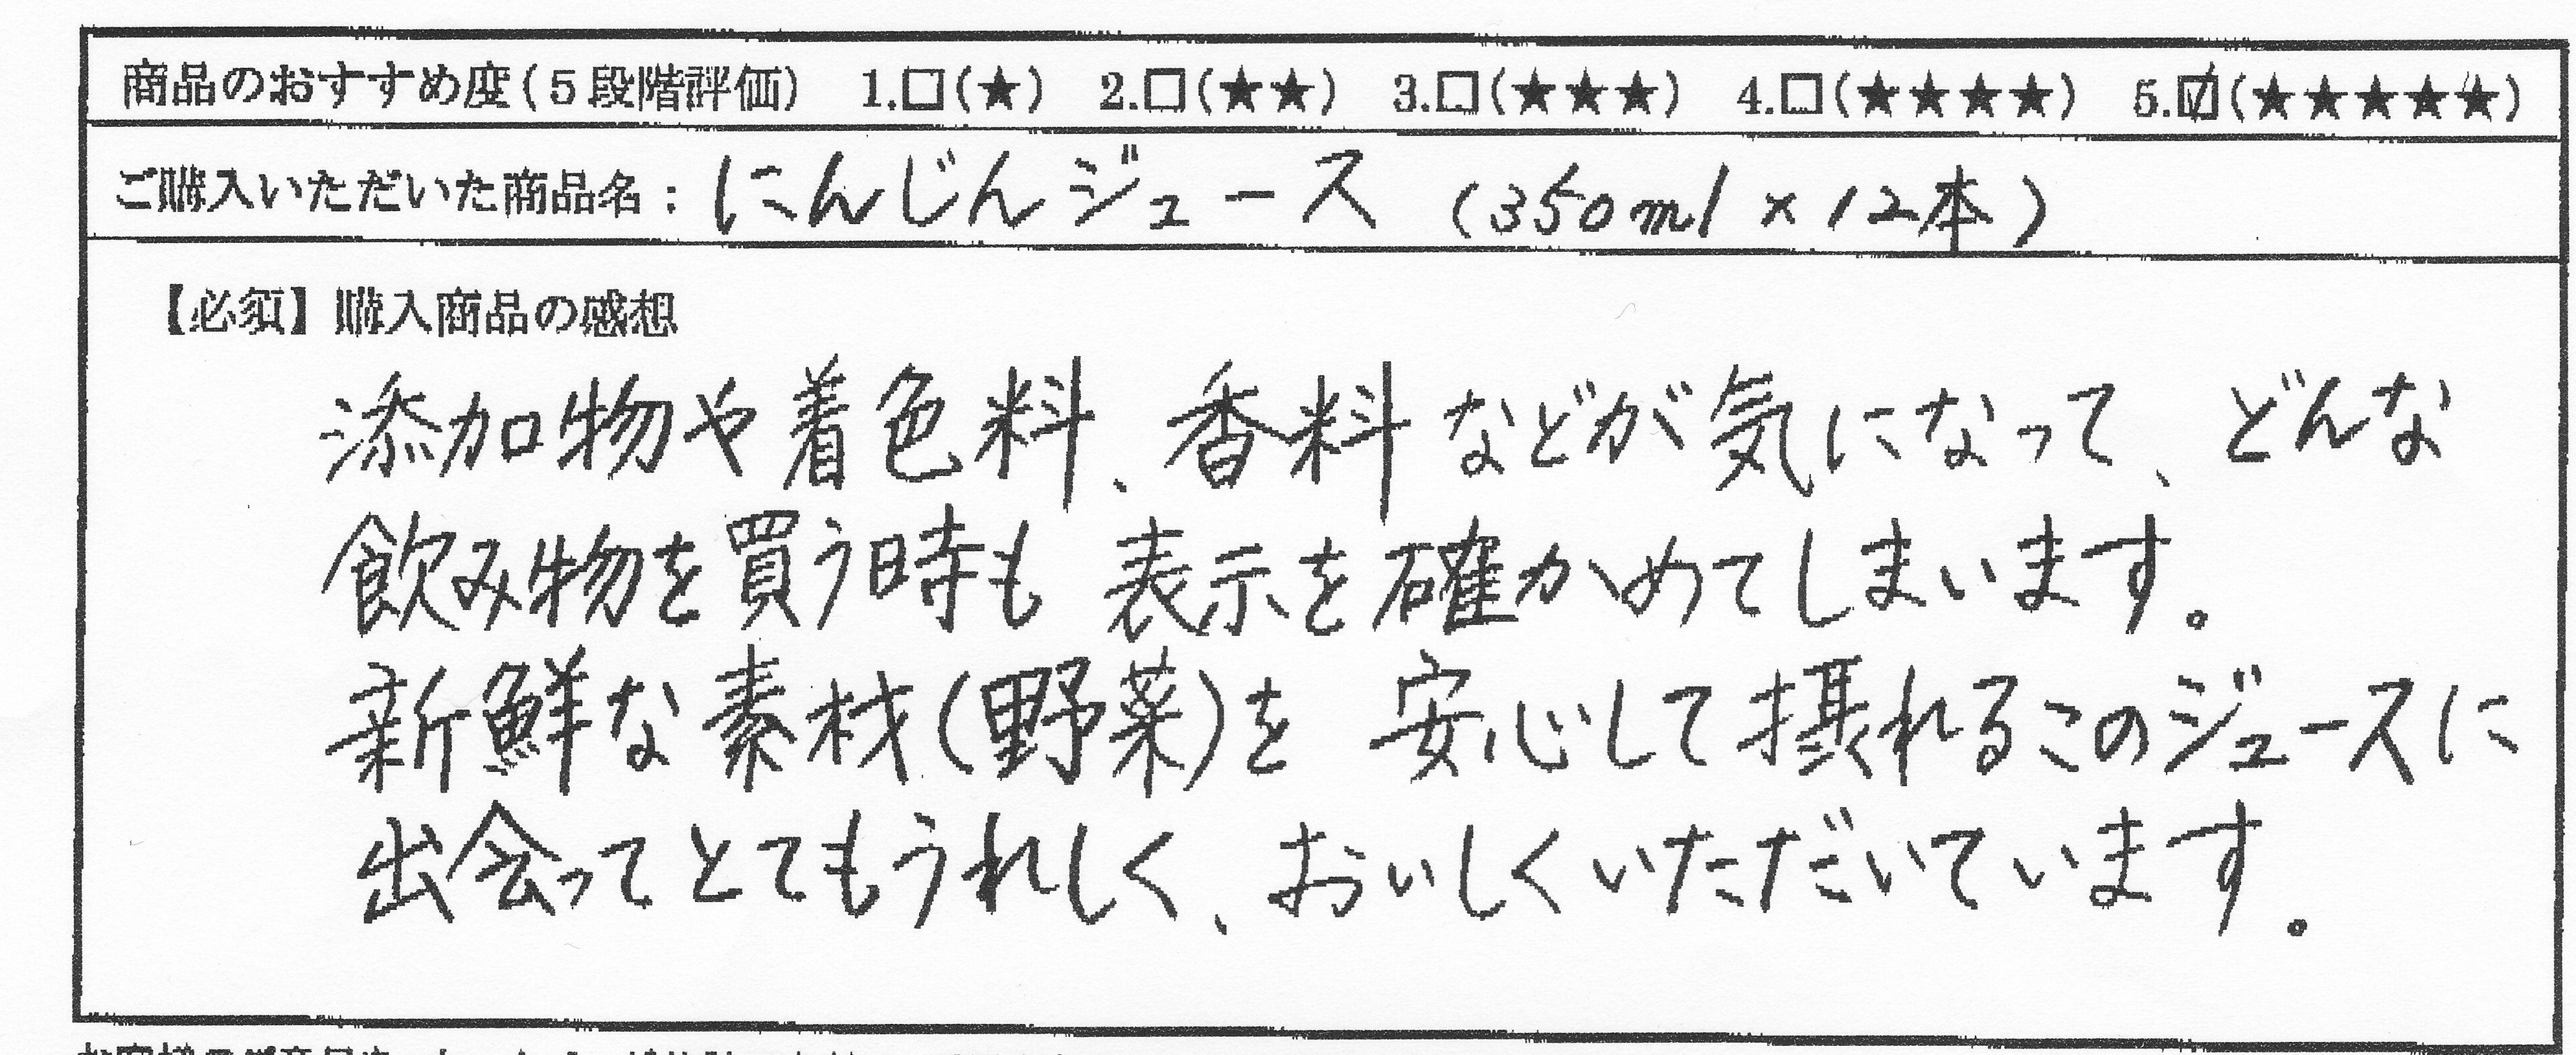 商品のおすすめ度(5段階評価) 1.□(★) 2.□(★★) 3.□(★★★) 4.□(★★★★) 5.☑(★★★★★)
ご購入いただいた商品名：にんじんジュース (350ml×12本)
【必須】購入商品の感想
添加物や着色料、香料などが気になって、どんな
飲み物を買う時も表示を確かめてしまいます。
新鮮な素材(野菜)を安心して摂れるこのジュースに
出会ってとてもうれしく、おいしくいただいています。